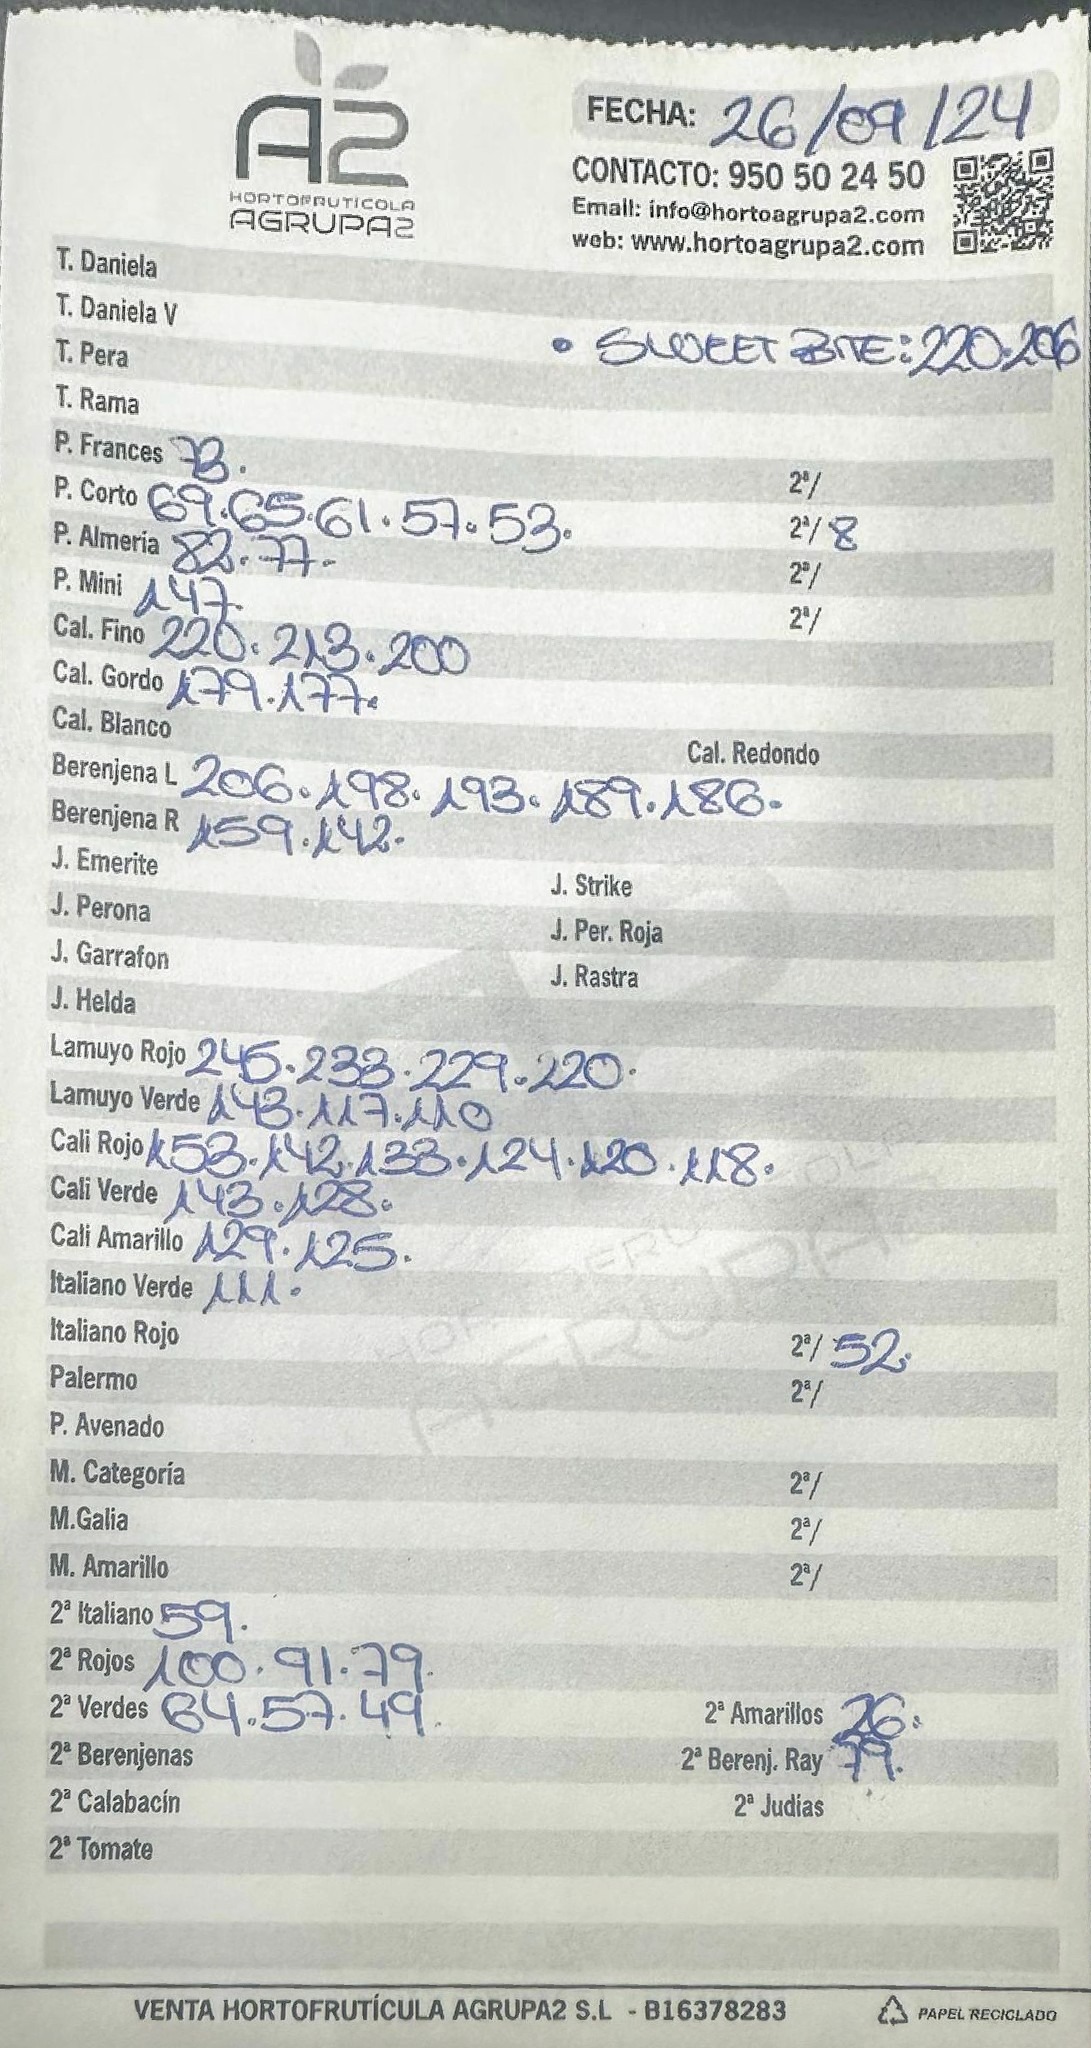 A2
HORTOFRUTICOLA
AGRUPA2
FECHA: 26/09/24
CONTACTO: 950 50 24 50
Email: info@hortoagrupa2.com
web: www.hortoagrupa2.com
T. Daniela
T. Daniela V
• SWEET BITE: 220.206
T. Pera
T. Rama
P. Frances 73. 2ª/
P. Corto 69.65.61.57.53. 2ª/ 8
P. Almeria 82.77. 2ª/
P. Mini 147. 2ª/
Cal. Fino 220.213.200
Cal. Gordo 179.177.
Cal. Blanco Cal. Redondo
Berenjena L 206.198.193.189.186.
Berenjena R 159.142.
J. Emerite J. Strike
J. Perona J. Per. Roja
J. Garrafon J. Rastra
J. Helda
Lamuyo Rojo 245.233.229.220.
Lamuyo Verde 143.117.110
Cali Rojo 153.142.133.124.120.118.
Cali Verde 143.128.
Cali Amarillo 129.125.
Italiano Verde 111.
Italiano Rojo 2ª/ 52.
Palermo 2ª/
P. Avenado
M. Categoría 2ª/
M.Galia 2ª/
M. Amarillo 2ª/
2ª Italiano 59.
2ª Rojos 100.91.79.
2ª Verdes 64.57.49. 2ª Amarillos 26.
2ª Berenjenas 2ª Berenj. Ray 79.
2ª Calabacín 2ª Judías
2ª Tomate
VENTA HORTOFRUTÍCULA AGRUPA2 S.L - B16378283 PAPEL RECICLADO